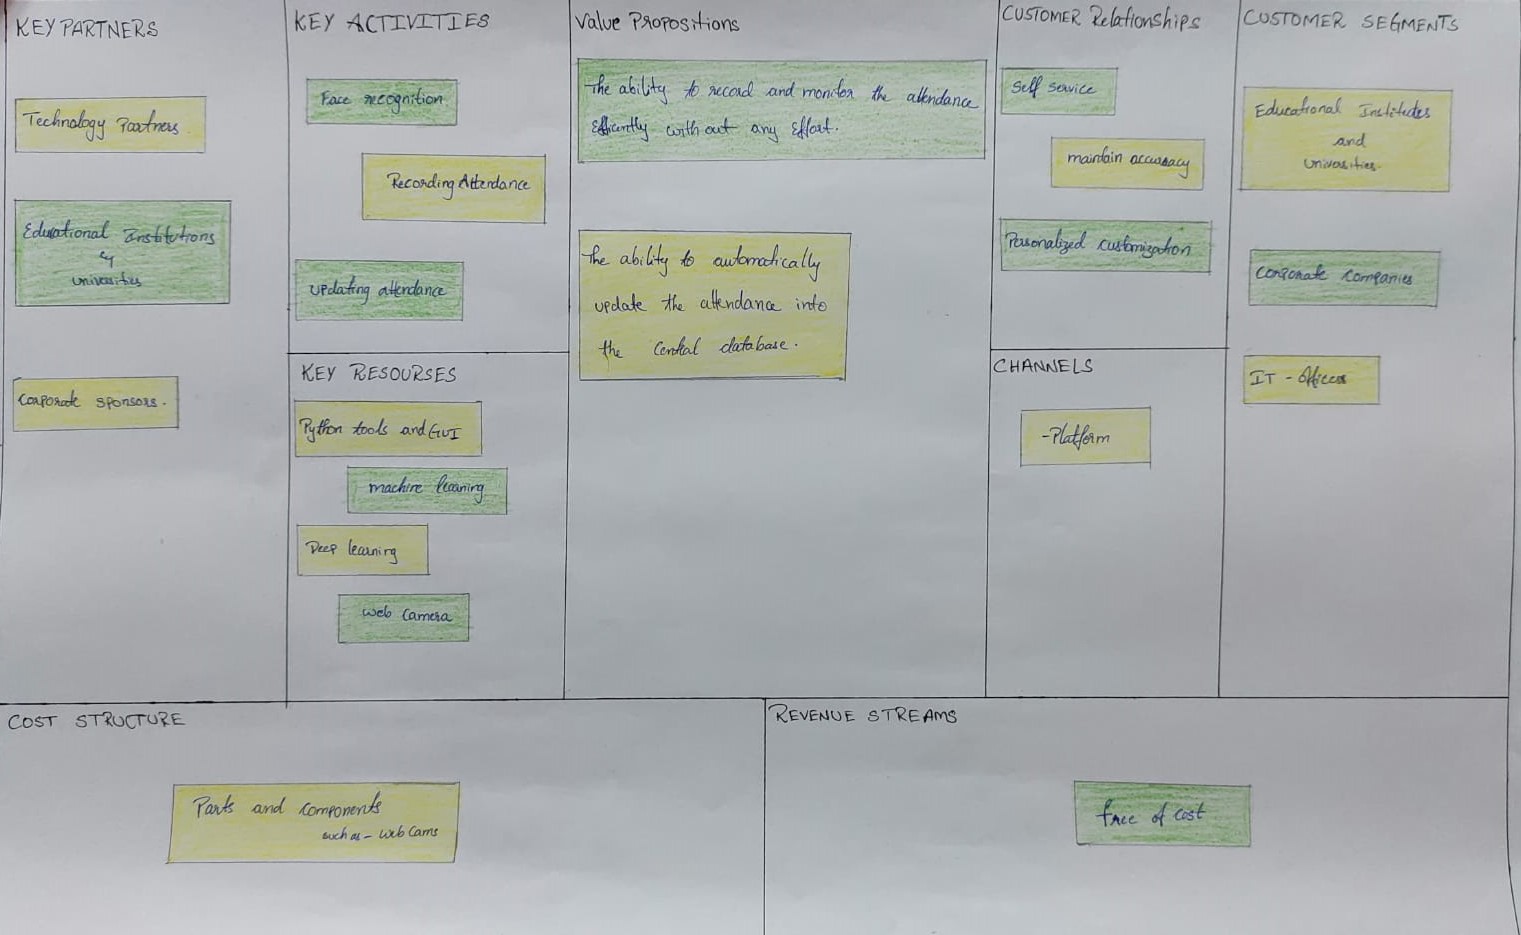 KEY PARTNERS
Technology Partners
Educational Institutions
&
universities
Corporate sponsors.
KEY ACTIVITIES
Face recognition
Recording Attendance
updating attendance
KEY RESOURSES
Python tools and GUI
machine learning
Deep learning
web camera
Value Propositions
The ability to record and monitor the attendance
Efficently with out any Effort.
The ability to automatically
update the attendance into
the Central database.
CUSTOMER Relationships
Self service
maintain accuracy
Personalized customization
CHANNELS
-Platform
CUSTOMER SEGMENTS
Educational Institutes
and
universities.
Corporate companies
IT - offices
COST STRUCTURE
Parts and components
such as - web cams
REVENUE STREAMS
free of cost